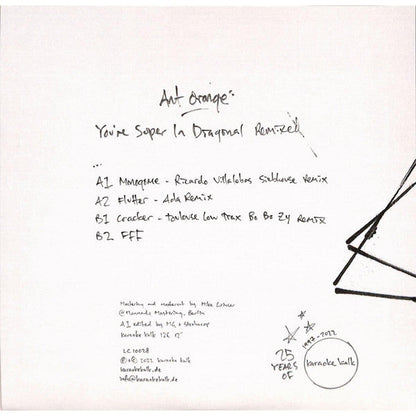 Ant Orange:
You're Super In Diagonal Remixed
...
A1 Monogome - Ricardo Villalobos Siebhouse Remix
A2 Flutter - Ada Remix
B1 Cracker - Toulouse Low Trax Bo Bo Zy Remix
B2 FFF
Mastering and mastercut by Mike Grinser
@Manmade Mastering, Berlin
A1 edited by MG +
karaoke kalk 126 12"
LC 10028
℗+© 2022 karaoke kalk
karaokekalk.de
info@karaokekalk.de
1997-2022
25
YEARS
OF
karaoke kalk